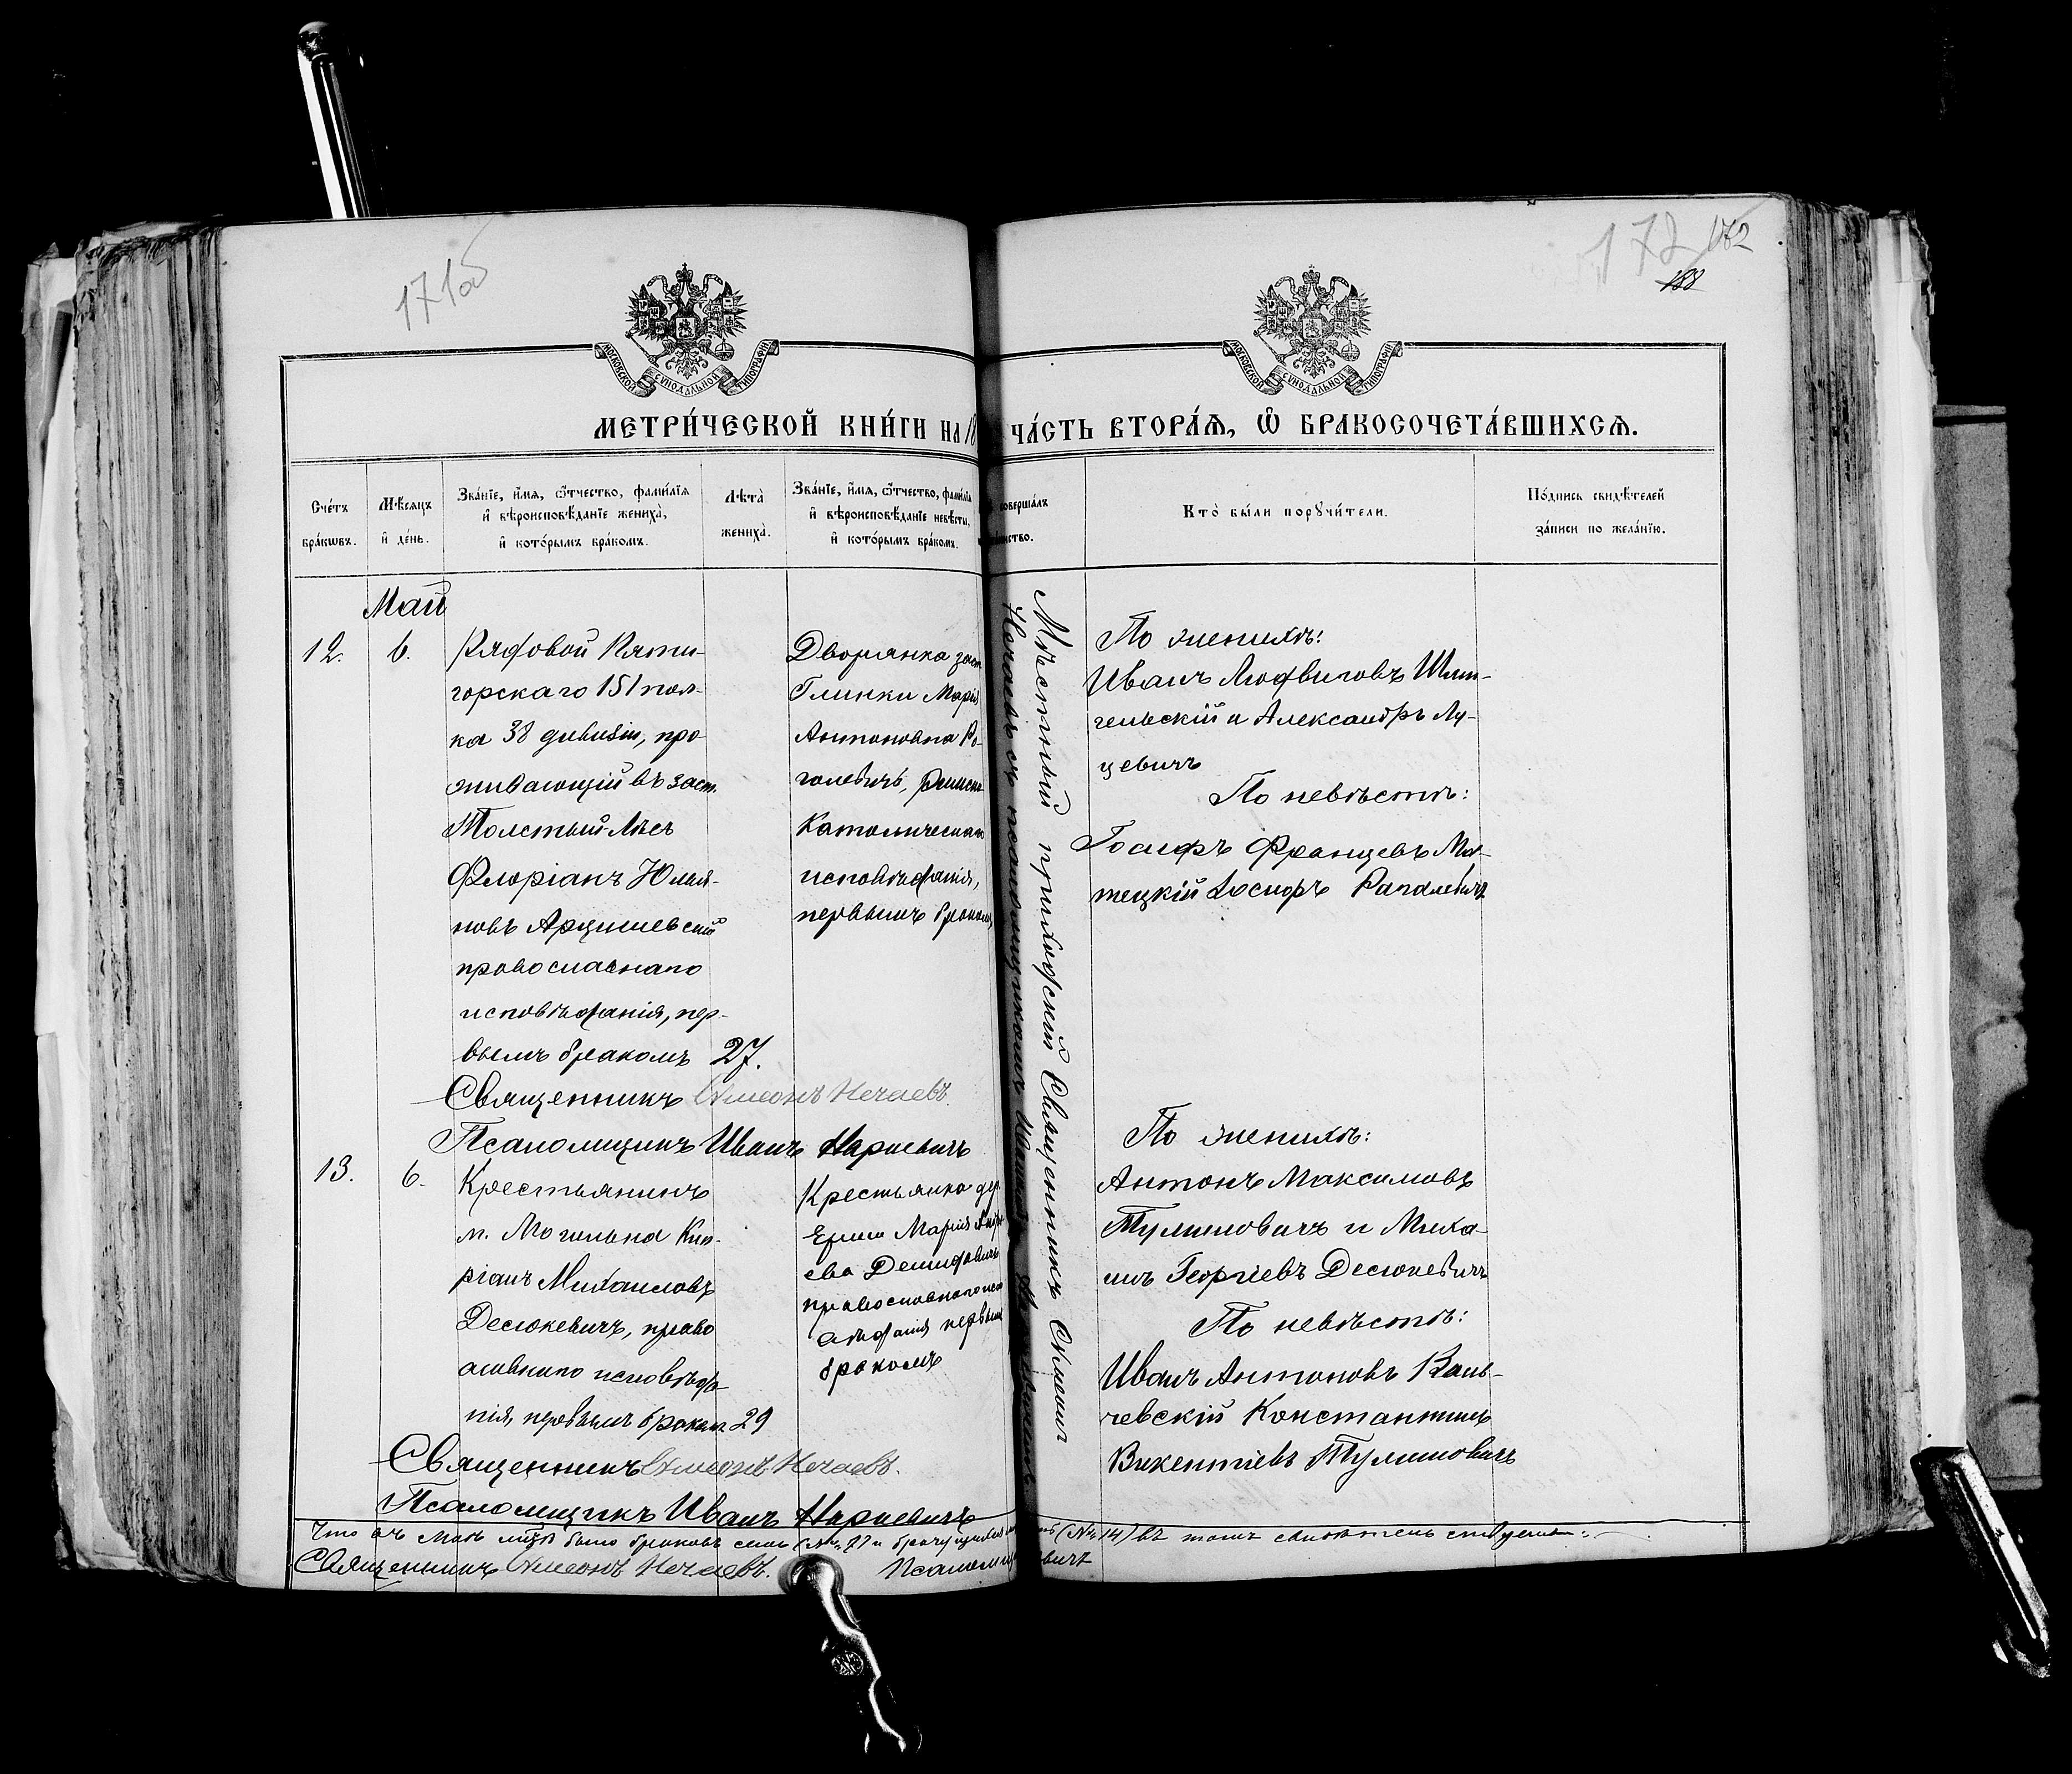 171об
172
172
188
МОСКОВСКОЙ СѴНОДАЛЬНОЙ ТИПОГРАФІИ
МОСКОВСКОЙ СѴНОДАЛЬНОЙ ТИПОГРАФІИ
МЕТРИ́ЧЕСКОЙ КНИ́ГИ НА 18
ЧА́СТЬ ВТОРА́Ѧ, Ѡ҆ БРАКОСОЧЕТА́ВШИХСѦ.
Сче́тъ бра́кωвъ.
Мѣ́сяцъ и҆ де́нь.
Зва́нїе, и҆́мѧ, ѻ҆́тчество, фами́лїѧ
и҆ вѣроисповѣ́данїе жениха̀,
и҆ кото́рымъ бра́комъ.
Лѣта̀ жениха̀.
Зва́нїе, и҆́мѧ, ѻ҆́тчество, фами́лїѧ
и҆ вѣроисповѣ́данїе невѣ́сты,
и҆ кото́рымъ бра́комъ.
соверша́лъ
Кто̀ бы́ли порꙋчи́тели.
По́дпись свидѣ́телей
за́писи по жела́нїю.
Май
12.
6.
Рядовой Пяти-
горскаго 151 пол-
ка 38 дивизіи, про
живающій въ заст.
Толстый Лѣсъ
Флоріанъ Юлья-
новъ Арцишевскій
православнаго
исповѣданія, пер-
вымъ бракомъ
27.
Дворянка заст
Глинки Марія
Антоновна Ро-
голевичъ, Римско
Католическаго
исповѣданія,
первымъ бракомъ,
Мѣстный приходскій Священникъ Симеонъ
Нечаевъ съ псаломщикомъ Иваномъ
По женихѣ:
Иванъ Людвиговъ
и Александръ Лу-
цевичъ
По невѣстѣ:
Іосифъ Францевъ Ма-
тецкій Іосифъ
Священникъ Симеонъ Нечаевъ.
Псаломщикъ Иванъ Наркевичъ
13.
6.
Крестьянинъ
м. Могильна Кип-
ріанъ Михаиловъ
Десюкевичъ, право
славнаго исповѣда-
нія, первымъ бракомъ
29
Крестьянка дер.
Марія
ева Демидовичъ
православнаго исп
вѣданія первымъ
бракомъ
По женихѣ:
Антонъ Максимовъ
Тумиловичъ и Миха-
илъ Георгіевъ Десюкевичъ
По невѣстѣ:
Иванъ Антоновъ Вань-
чевскій Константинъ
Викентіевъ Тумиловичъ
Священникъ Симеонъ Нечаевъ.
Псаломщикъ Иванъ Наркевичъ
Что въ Маѣ мцѣ было браковъ (№ 14) въ томъ свидѣтельствуемъ:
Священникъ Симеонъ Нечаевъ.
Псаломщ
евичъ